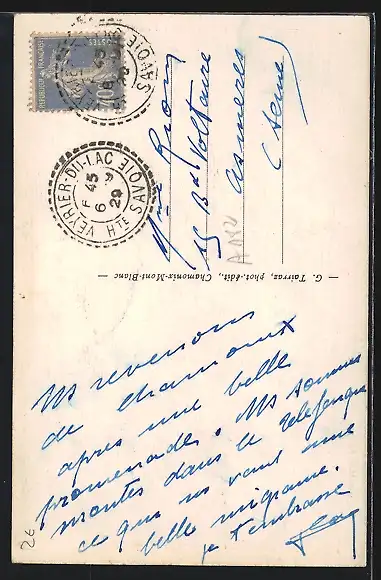 REPUBLIQUE FRANÇAISE
POSTES
VEYRIER-DU-LAC
Hte SAVOIE
6
29
Mme Rion
15 Bd Voltaire
Asnieres
(Seine)
G. Tairraz, phot.-édit., Chamonix-Mont-Blanc
Ns revenons
de chamonix
apres une belle
promenade. Ns sommes
montés dans le telefonique
ce que ns vaut une
belle migraine.
je t'embrasse
26